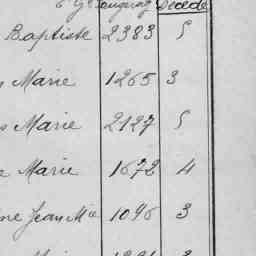 Decede
Baptiste 2383 5
Marie 1265 3
Marie 2127 5
Marie 1672 4
Jean Mie 1096 3